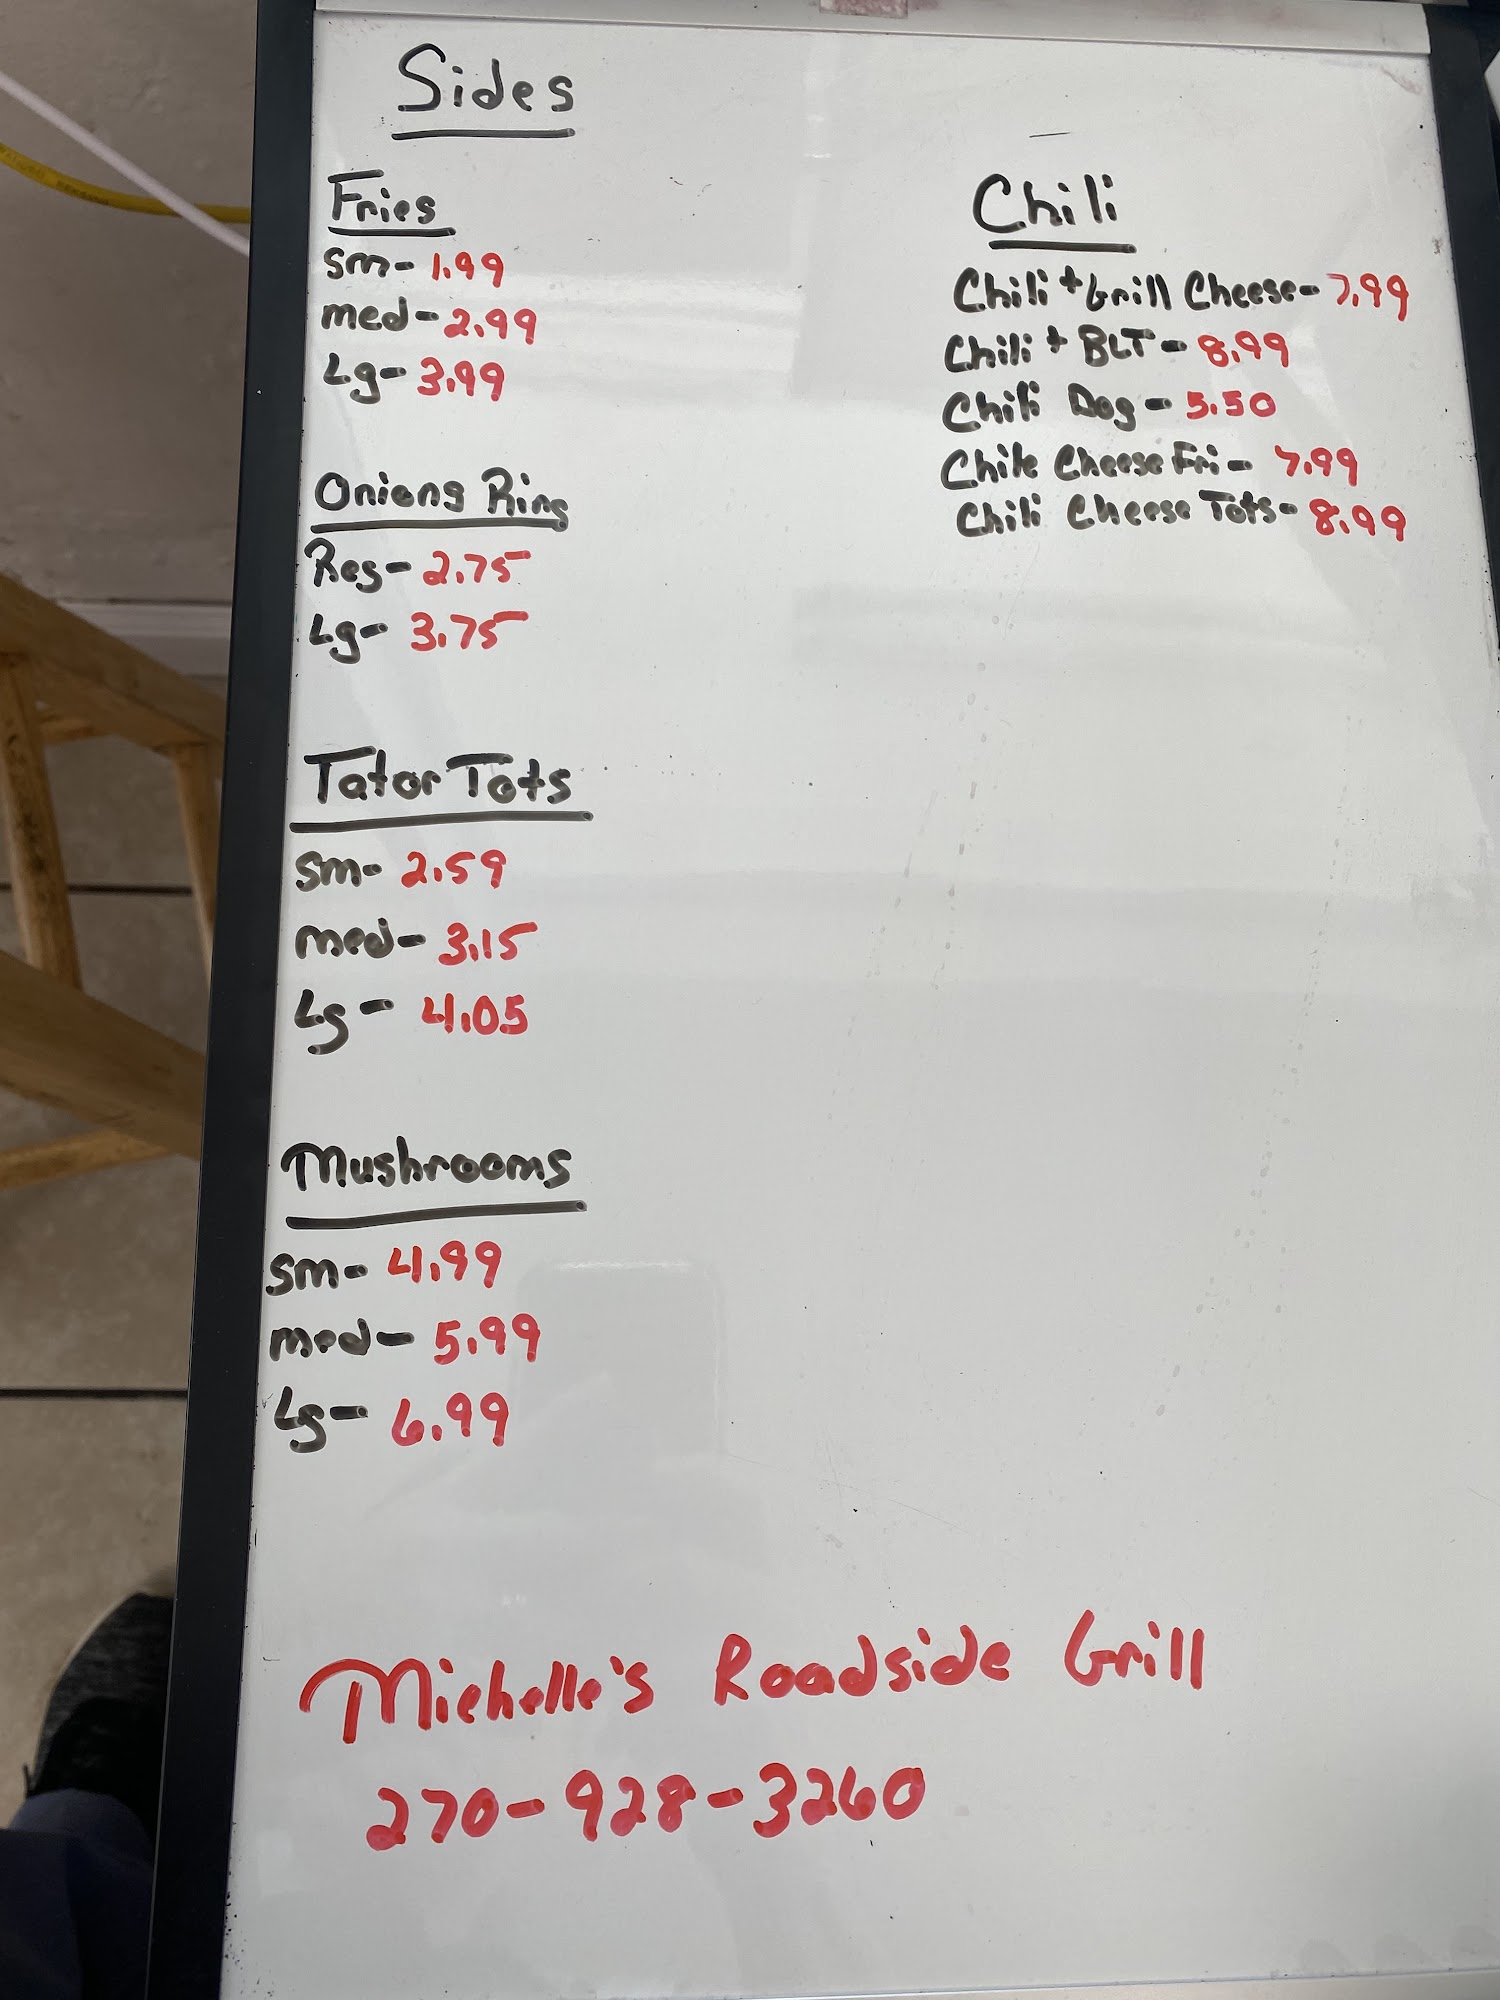 Sides
Fries
sm- 1.99
med- 2.99
Lg- 3.99
Onions Ring
Reg- 2.75
Lg- 3.75
Tator Tots
sm- 2.59
med- 3.15
Lg- 4.05
Mushrooms
sm- 4.99
med- 5.99
Lg- 6.99
Chili
Chili + Grill Cheese- 7.99
Chili + BLT- 8.99
Chili Dog- 5.50
Chile Cheese Fri- 7.99
Chili Cheese Tots- 8.99
Michelle's Roadside Grill
270-928-3260